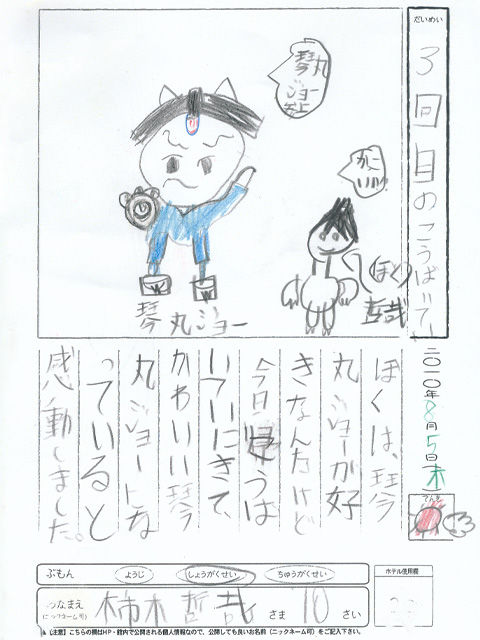 だいめい
3回目のこうばいてい
二〇一〇年8月5日(木)
てんき
琴丸
ジョー
参上
かっこ
いい
ぼく
哲哉
琴丸ジョー
ぼくは、琴
丸ジョーが好
きなんだけど
今日
いていにきて、
かわいい琴
丸ジョーにな
っていると
感動しました。
ぶもん ようじ しょうがくせい ちゅうがくせい
ホテル使用欄
おなまえ (ニックネーム可) 柿木 哲哉 さま 10 さい
▲(注意)こちらの欄はHP・館内で公開される個人情報なので、公開しても良いお名前(ニックネーム可)をご記入下さい。